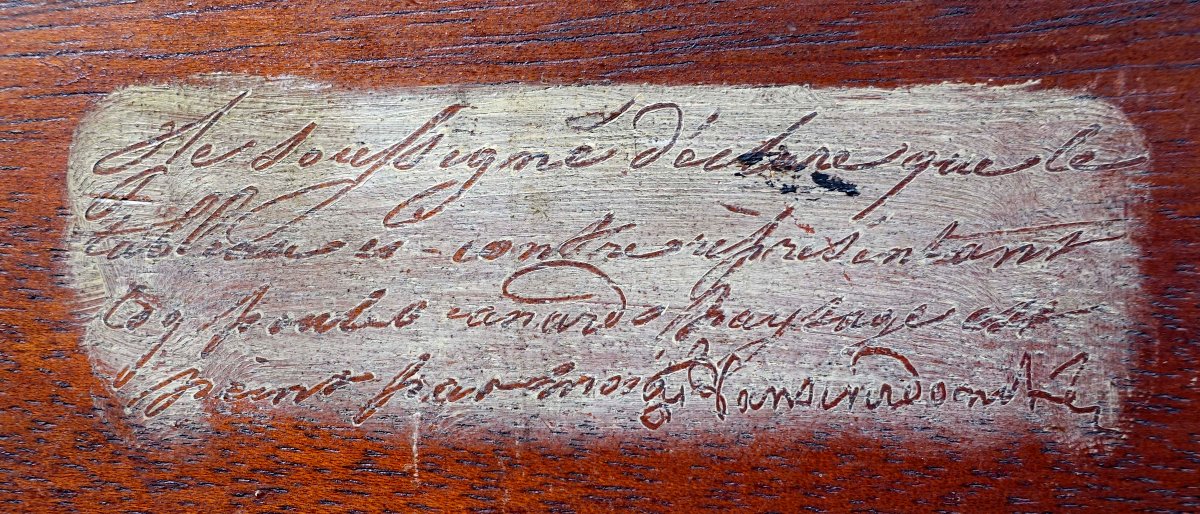 Je soussigné déclare que le
tableau ci-contre représentant
Coq poules canards paysage est
peint par moi